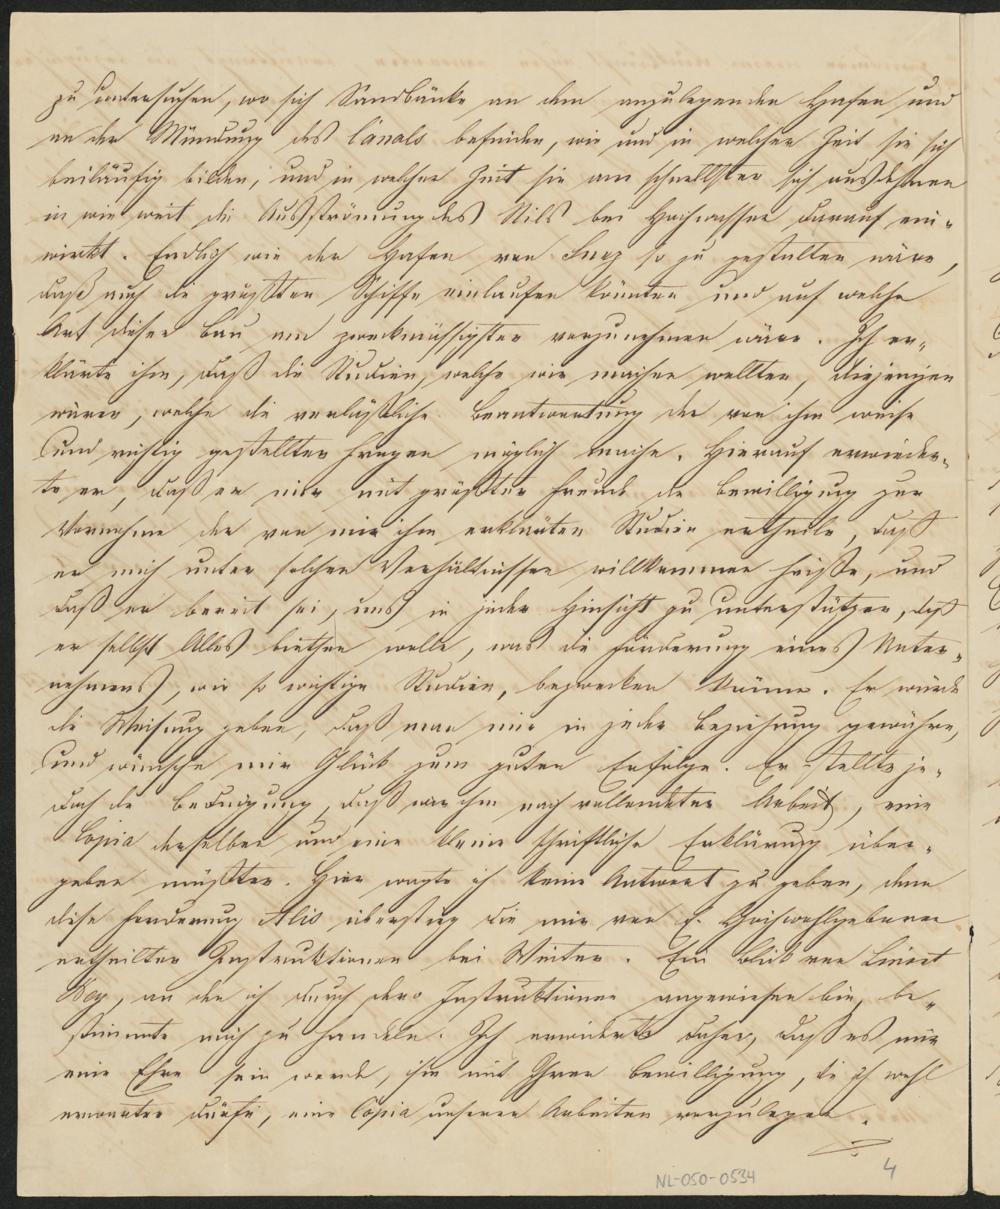 zu untersuchen, wo sich Sandbänke an dem anzulegenden Hafen und
an der Mündung des Canals befinden, wie und in welcher Zeit sie sich
beiläufig bilden, und in welcher Zeit sie am schnellsten sich ausdehnen
in wie weit die Ausströmung des Nils bei Hochwasser darauf ein-
wirkt. Endlich wie der Hafen von Suez so zu gestalten wäre,
daß auch die größten Schiffe einlaufen könnten und auf welche
Art dieser Bau am zweckmässigsten vorzunehmen wäre. Ich er-
klärte ihm, daß die Studien, welche wir machen wollten, diejenigen
wären, welche die verläßliche Beantwortung der von ihm weise
und richtig gestellten Fragen möglich mache. Hierauf erwieder-
te er, daß er mir mit größter Freude die Bewilligung zur
Vornahme der von mir ihm erklärten Studien ertheile, daß
er mich unter solchen Verhältnissen willkommen heiße, und
daß er bereit sei, uns in jeder Hinsicht zu unterstützen, daß
er selbst Alles biethen wolle, was die Förderung eines Unter-
nehmens, wie so wichtige Studien, bezwecken könne. Er würde
die Weisung geben, daß man mir in jeder Beziehung gewähre,
und wünsche mir Glück zum guten Erfolge. Er stellte je-
doch die Bedingung, daß wir ihm nach vollendeter Arbeit, eine
Copia derselben und eine kleine schriftliche Erklärung über-
geben müßten. Hier wagte ich keine Antwort zu geben, denn
diese Forderung Alis überstieg die mir von E. Hochwohlgeboren
ertheilten Instruktionen bei Weitem. Ein Blick von Linant
Bey, an den ich durch dero Instruktionen angewiesen bin, be-
stimmte mich zu handeln. Ich erwiderte daher, daß es mir
eine Ehre sein werde, ihm mit Ihrer Bewilligung, die ich wohl
erwarten dürfe, eine Copia unserer Arbeiten vorzulegen.
NL-050-0534
4